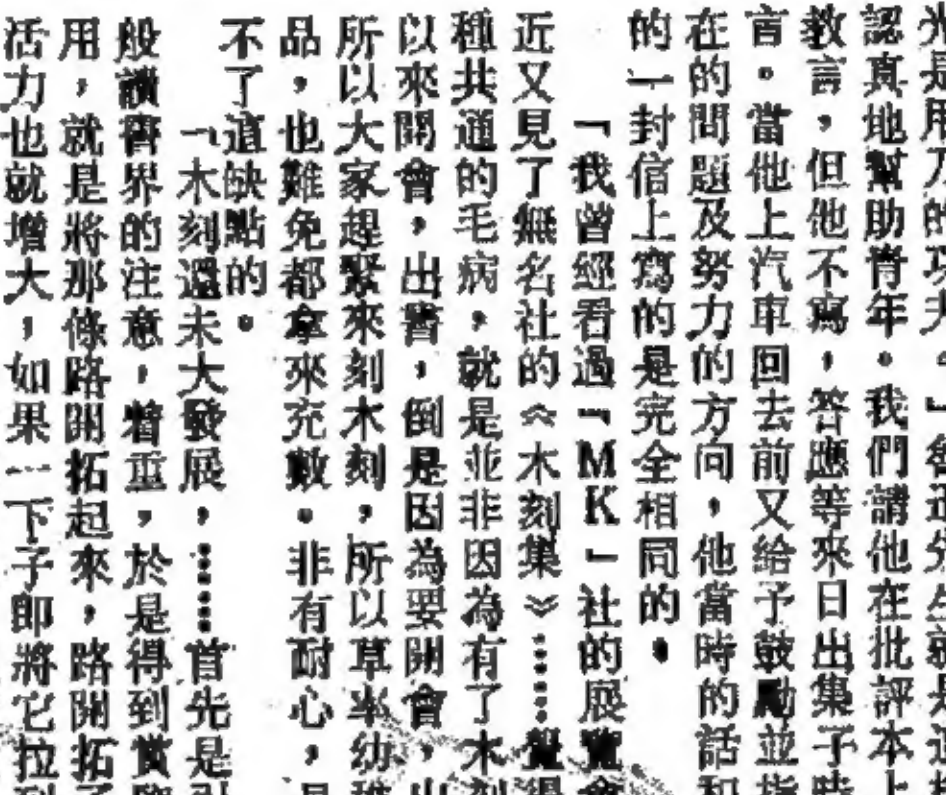 是用刀的功夫。」魯迅先生就是這
認真地幫助青年。我們請他在批評本上
教言,但他不寫,答應等來日出集子時
言。當他上汽車回去前又給予鼓勵並指
在的問題及努力的方向,他當時的話和
的一封信上寫的是完全相同的。
「我曾經看過「MK」社的展覽會
近又見了無名社的《木刻集》……覺得
種共通的毛病,就是並非因為有了木刻
以來開會,出書,倒是因為要開會,出
所以大家趕緊來刻木刻,所以草率幼稚
品,也難免都拿來充數。非有耐心,是
不了這缺點的。
「木刻還未大發展,……首先是引
般讀書界的注意,着重,於是得到賞鑒
用,就是將那條路開拓起來,路開拓了
活力也就增大,如果一下子即將它拉到